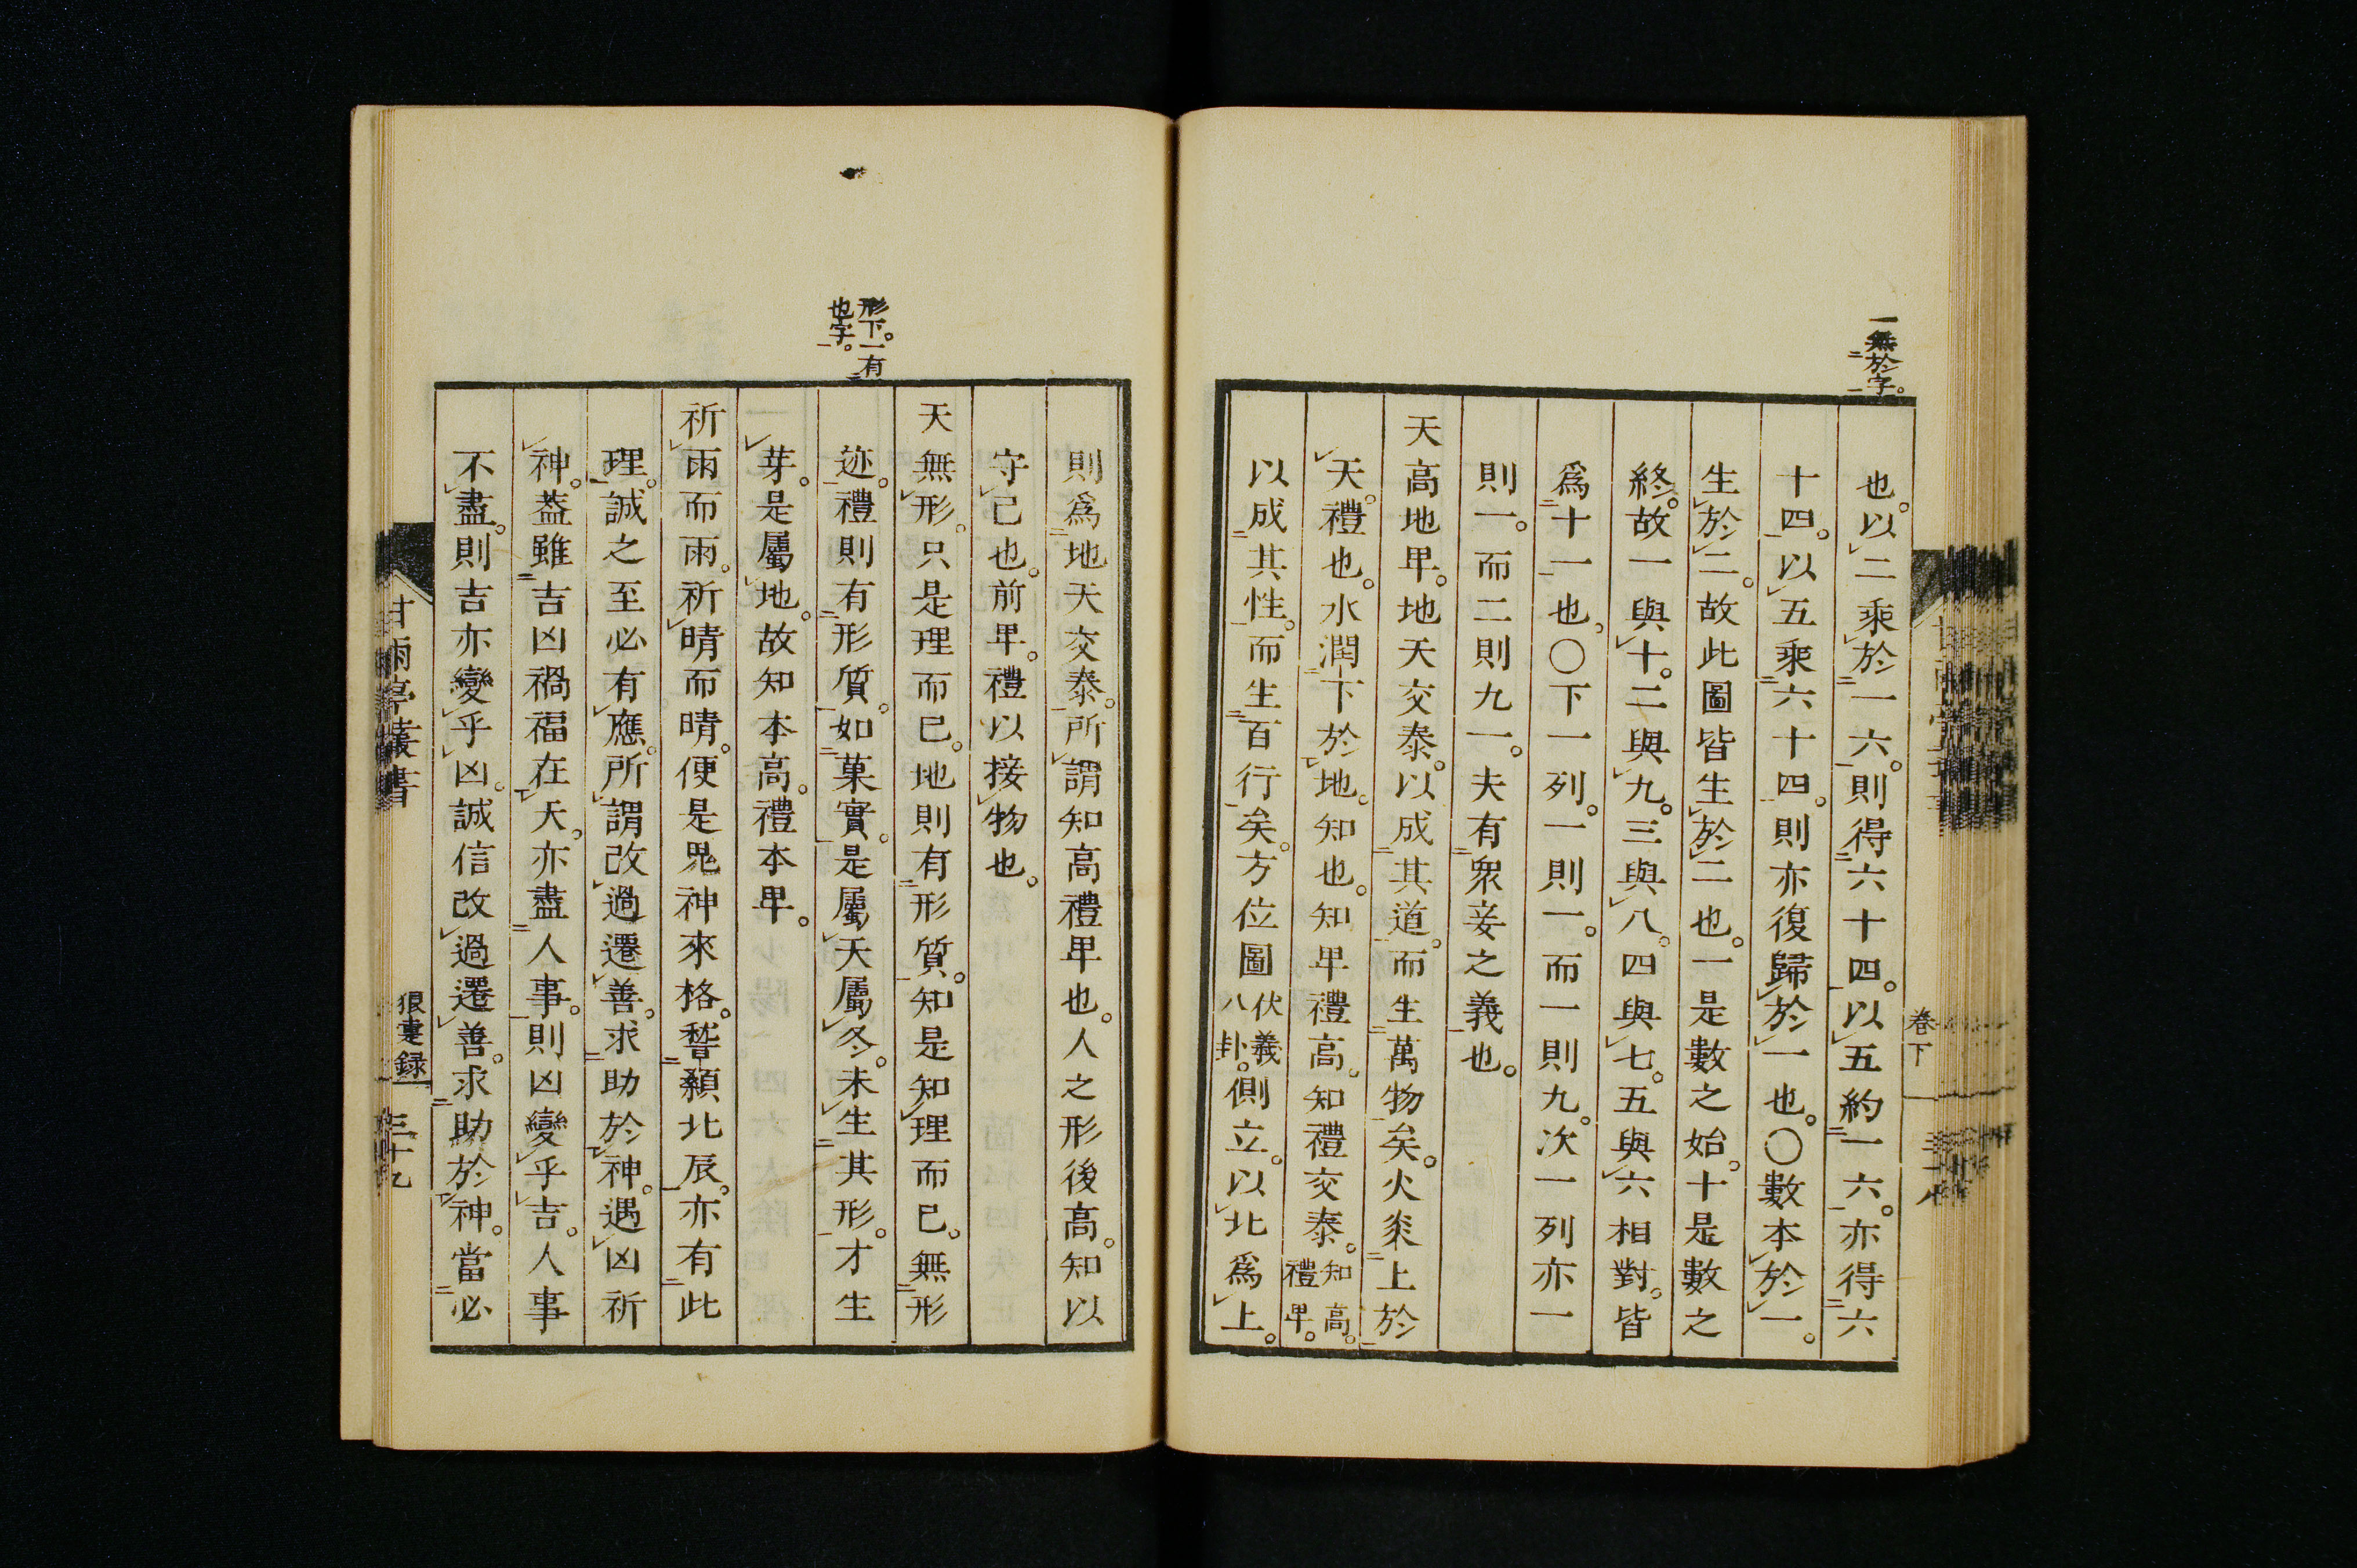 一無於字。
也。以二乘於一六。則得六十四。以五約一六。亦得六
十四。以五乘六十四。則亦復歸於一也。〇數本於一。
生於二。故此圖皆生於二也。一是數之始。十是數之
終。故一與十。二與九。三與八。四與七。五與六相對。皆
爲十一也。〇下一列。一則一。而一則九。次一列亦一
則一。而二則九一。夫有衆妾之義也。
天高地卑。地天交泰。以成其道。而生萬物矣。火炎上於
天。禮也。水潤下於地。知也。知卑禮高。知禮交泰。知高。禮卑。
以成其性。而生百行矣。方位圖伏羲八卦。側立。以北爲上。
卷下
形下。一有
也字。
則爲地天交泰。所謂知高禮卑也。人之形後高。知以
守己也。前卑。禮以接物也。
天無形。只是理而已。地則有形質。知是知理而已。無形
迹。禮則有形質。如菓實。是屬天屬冬。未生其形。才生
芽。是屬地。故知本高。禮本卑。
祈雨而雨。祈晴而晴。便是鬼神來格。誓顙北辰。亦有此
理。誠之至必有應。所謂改過遷善。求助於神。遇凶祈
神。蓋雖吉凶禍福在天。亦盡人事。則凶變乎吉。人事
不盡。則吉亦變乎凶。誠信改過遷善。求助於神。當必
甘雨亭叢書
狼疐録
三十九